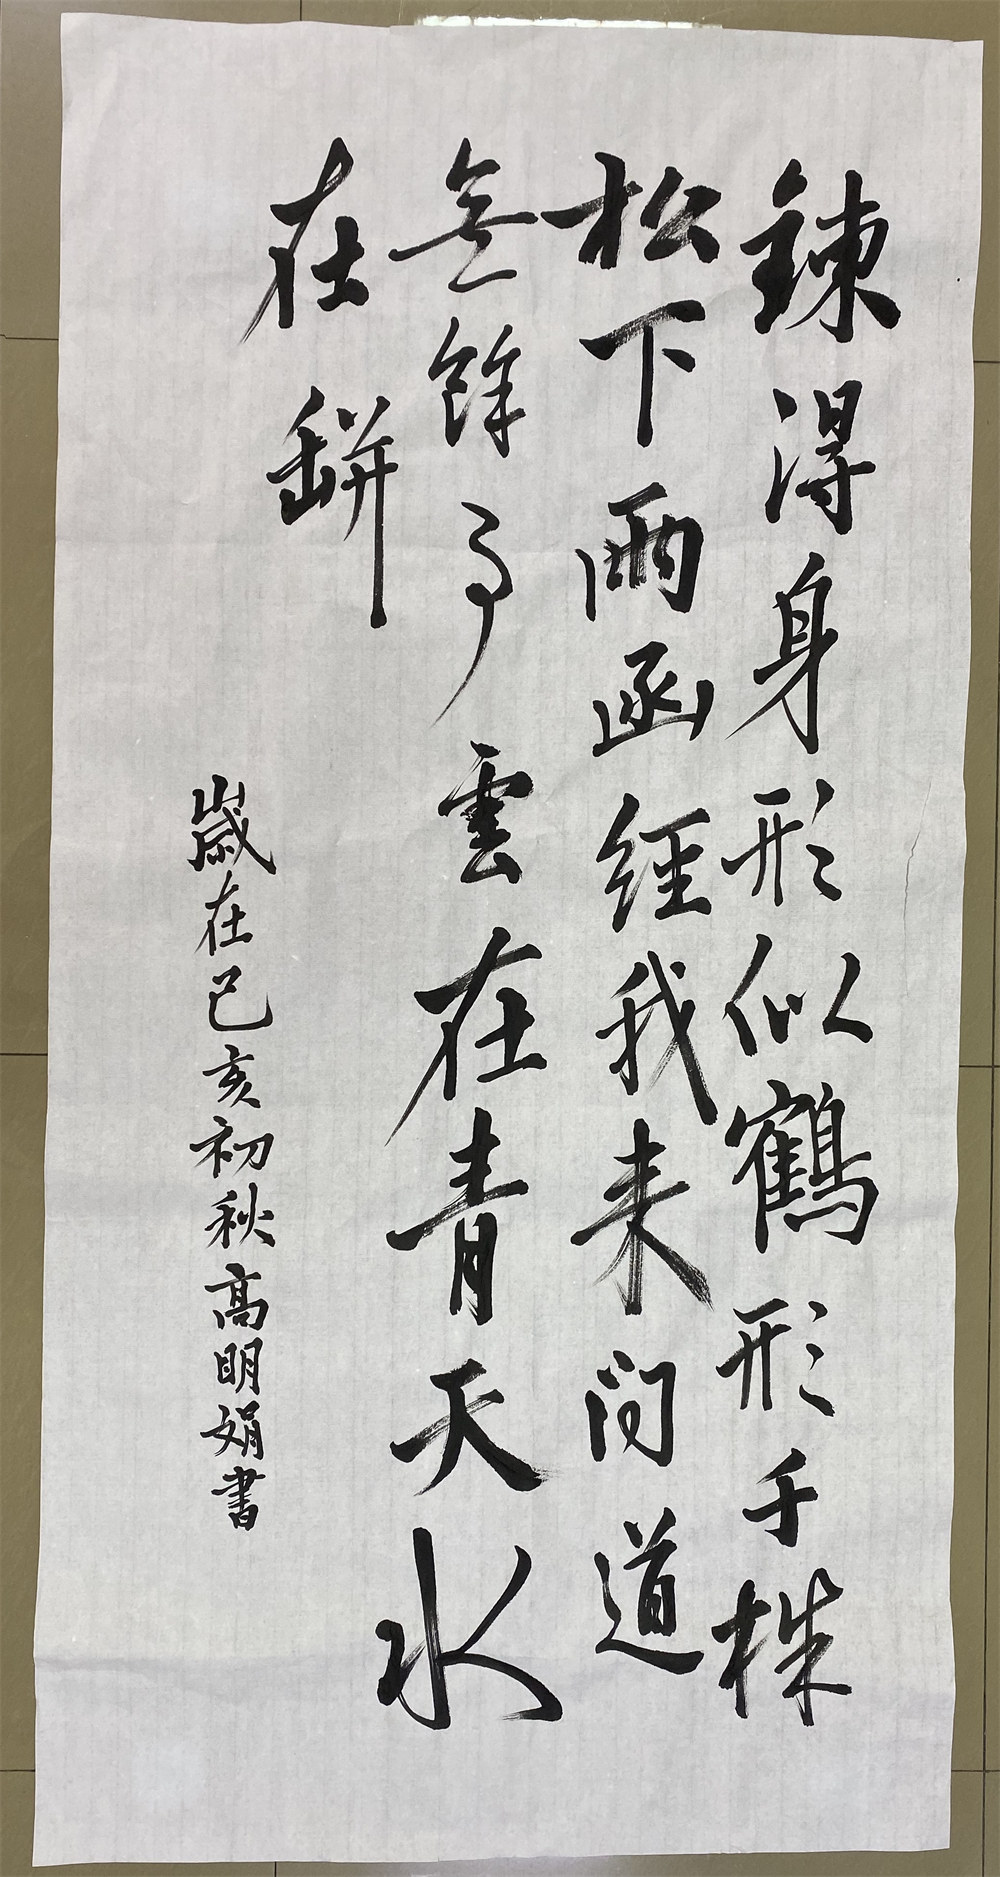 鍊得身形似鶴形千株
松下兩函經我來問道
無餘事雲在青天水
在缾
歲在己亥初秋高明娟書